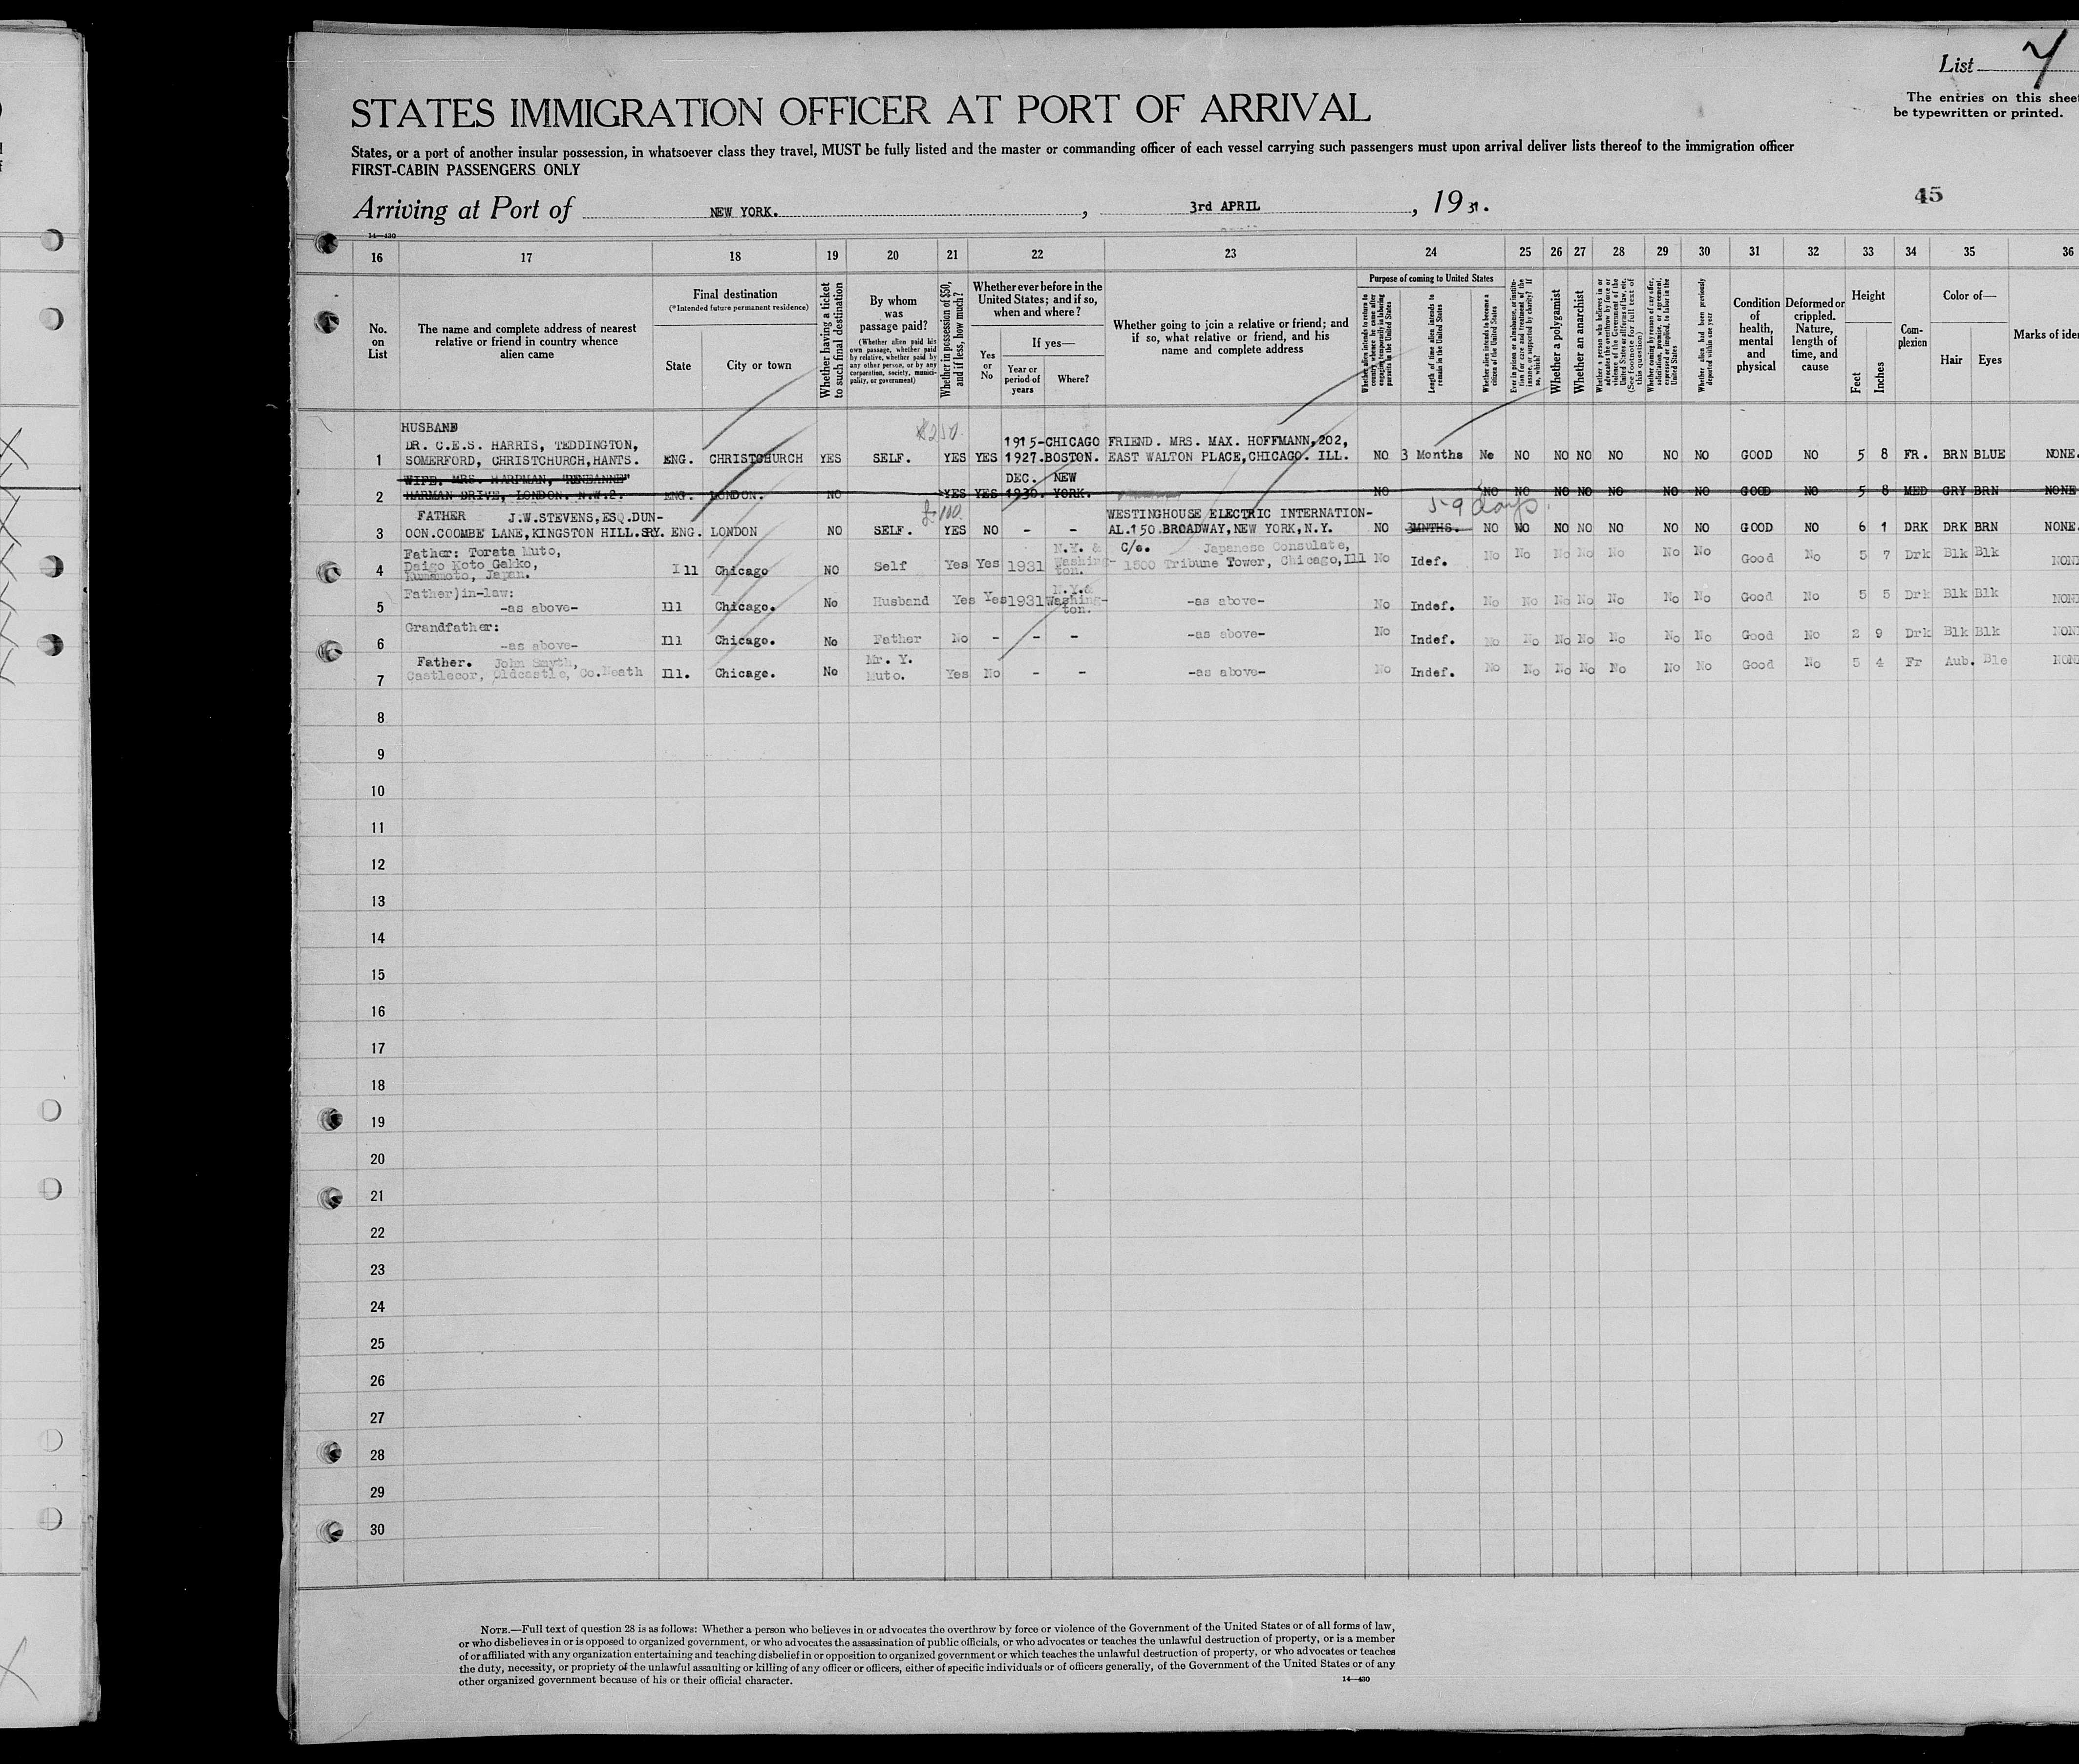 List 7
STATES IMMIGRATION OFFICER AT PORT OF ARRIVAL
The entries on this sheet
be typewritten or printed.
States, or a port of another insular possession, in whatsoever class they travel, MUST be fully listed and the master or commanding officer of each vessel carrying such passengers must upon arrival deliver lists thereof to the immigration officer
FIRST-CABIN PASSENGERS ONLY
45
Arriving at Port of NEW YORK. , 3rd APRIL , 19 31.
14—430
16 17 18 19 20 21 22 23 24 25 26 27 28 29 30 31 32 33 34 35 36
No. on List
The name and complete address of nearest relative or friend in country whence alien came
Final destination
(*Intended future permanent residence)
State
City or town
Whether having a ticket to such final destination
By whom was passage paid?
(Whether alien paid his own passage, whether paid by relative, whether paid by any other person, or by any corporation, society, municipality, or government)
Whether in possession of $50, and if less, how much?
Whether ever before in the United States; and if so, when and where?
Yes or No
If yes—
Year or period of years
Where?
Whether going to join a relative or friend; and if so, what relative or friend, and his name and complete address
Purpose of coming to United States
Whether alien intends to return to country whence he came after engaging temporarily in laboring pursuits in the United States
Length of time alien intends to remain in the United States
Whether alien intends to become a citizen of the United States
Ever in prison or almshouse, or institution for care and treatment of the insane, or supported by charity? If so, which?
Whether a polygamist
Whether an anarchist
Whether a person who believes in or advocates the overthrow by force or violence of the Government of the United States or all forms of law, etc. (See footnote for full text of this question)
Whether coming by reason of any offer, solicitation, promise, or agreement, expressed or implied, to labor in the United States
Whether alien had been previously deported within one year
Condition of health, mental and physical
Deformed or crippled. Nature, length of time, and cause
Height
Feet
Inches
Com-plexion
Color of—
Hair
Eyes
Marks of iden
$250.
HUSBAND
DR. C.E.S. HARRIS, TEDDINGTON, 1915-CHICAGO FRIEND. MRS. MAX. HOFFMANN,202,
1 SOMERFORD, CHRISTCHURCH,HANTS. ENG. CHRISTCHURCH YES SELF. YES YES 1927.BOSTON. EAST WALTON PLACE,CHICAGO. ILL. NO 3 Months No NO NO NO NO NO NO GOOD NO 5 8 FR. BRN BLUE NONE.
WIFE. MRS. HARDMAN, "RENDANNE" DEC. NEW
2 HARMAN DRIVE, LONDON. N.W.2. ENG. LONDON. NO YES YES 1930. YORK. NO NO NO NO NO NO NO NO GOOD NO 5 8 MED GRY BRN NONE
£100. 59 days.
FATHER J.W.STEVENS,ESQ.DUN- WESTINGHOUSE ELECTRIC INTERNATION-
3 OON.COOMBE LANE,KINGSTON HILL.SRY. ENG. LONDON NO SELF. YES NO - - AL.150.BROADWAY,NEW YORK,N.Y. NO 3MNTHS. NO NO NO NO NO NO NO GOOD NO 6 1 DRK DRK BRN NONE.
Father: Torata Muto, N.Y. & C/o. Japanese Consulate,
4 Daigo Koto Gakko, Ill Chicago NO Self Yes Yes 1931 Washing- 1500 Tribune Tower, Chicago,Ill No Idef. No No No No No No No Good No 5 7 Drk Blk Blk NON
Kumamoto, Japan. ton.
Father)in-law: N.Y.&
5 -as above- Ill Chicago. No Husband Yes Yes 1931 Washing- -as above- No Indef. No No No No No No No Good No 5 5 Drk Blk Blk NON
ton.
Grandfather:
6 -as above- Ill Chicago. No Father No - - - -as above- No Indef. No No No No No No No Good No 2 9 Drk Blk Blk NON
Father. John Smyth, Mr. Y.
7 Castlecor, Oldcastle, Co.Neath Ill. Chicago. No Muto. Yes No - - -as above- No Indef. No No No No No No No Good No 5 4 Fr Aub. Ble NON
8
9
10
11
12
13
14
15
16
17
18
19
20
21
22
23
24
25
26
27
28
29
30
NOTE.—Full text of question 28 is as follows: Whether a person who believes in or advocates the overthrow by force or violence of the Government of the United States or of all forms of law,
or who disbelieves in or is opposed to organized government, or who advocates the assassination of public officials, or who advocates or teaches the unlawful destruction of property, or is a member
of or affiliated with any organization entertaining and teaching disbelief in or opposition to organized government or which teaches the unlawful destruction of property, or who advocates or teaches
the duty, necessity, or propriety of the unlawful assaulting or killing of any officer or officers, either of specific individuals or of officers generally, of the Government of the United States or of any
other organized government because of his or their official character.
14—430